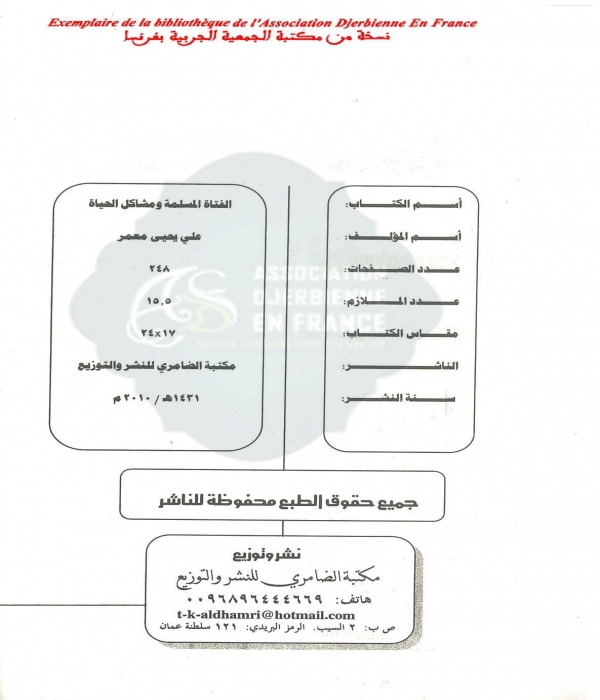 Exemplaire de la bibliothèque de l'Association Djerbienne En France
نسخة من مكتبة الجمعية الجربية بفرنسا
أسم الكتاب: الفتاة المسلمة ومشاكل الحياة
أسم المؤلف: علي يحيى معمر
عدد الصفحات: ٢٤٨
عدد الملازم: ١٥,٥
مقاس الكتاب: ١٧×٢٤
الناشر: مكتبة الضامري للنشر والتوزيع
سنة النشر: ١٤٣١هـ / ٢٠١٠ م
ASSOCIATION
DJERBIENNE
EN FRANCE
جميع حقوق الطبع محفوظة للناشر
نشر وتوزيع
مكتبة الضامري للنشر والتوزيع
هاتف: ٠٠٩٦٨٩٦٤٤٤٦٦٩
t-k-aldhamri@hotmail.com
ص ب: ٢ السيب. الرمز البريدي: ١٢١ سلطنة عمان